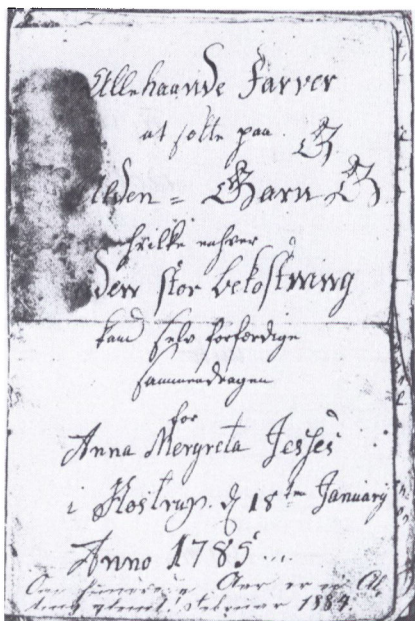 Allehaande Farver
at sætte paa
Ulden = Garn
hvilke enhver
uden stor bekostning
kand selv forferdige
sammendragen
for
Anna Mergreta Jesses
i Kostrup. d 18ten January
Anno 1785
Aar er
Februar 1884.